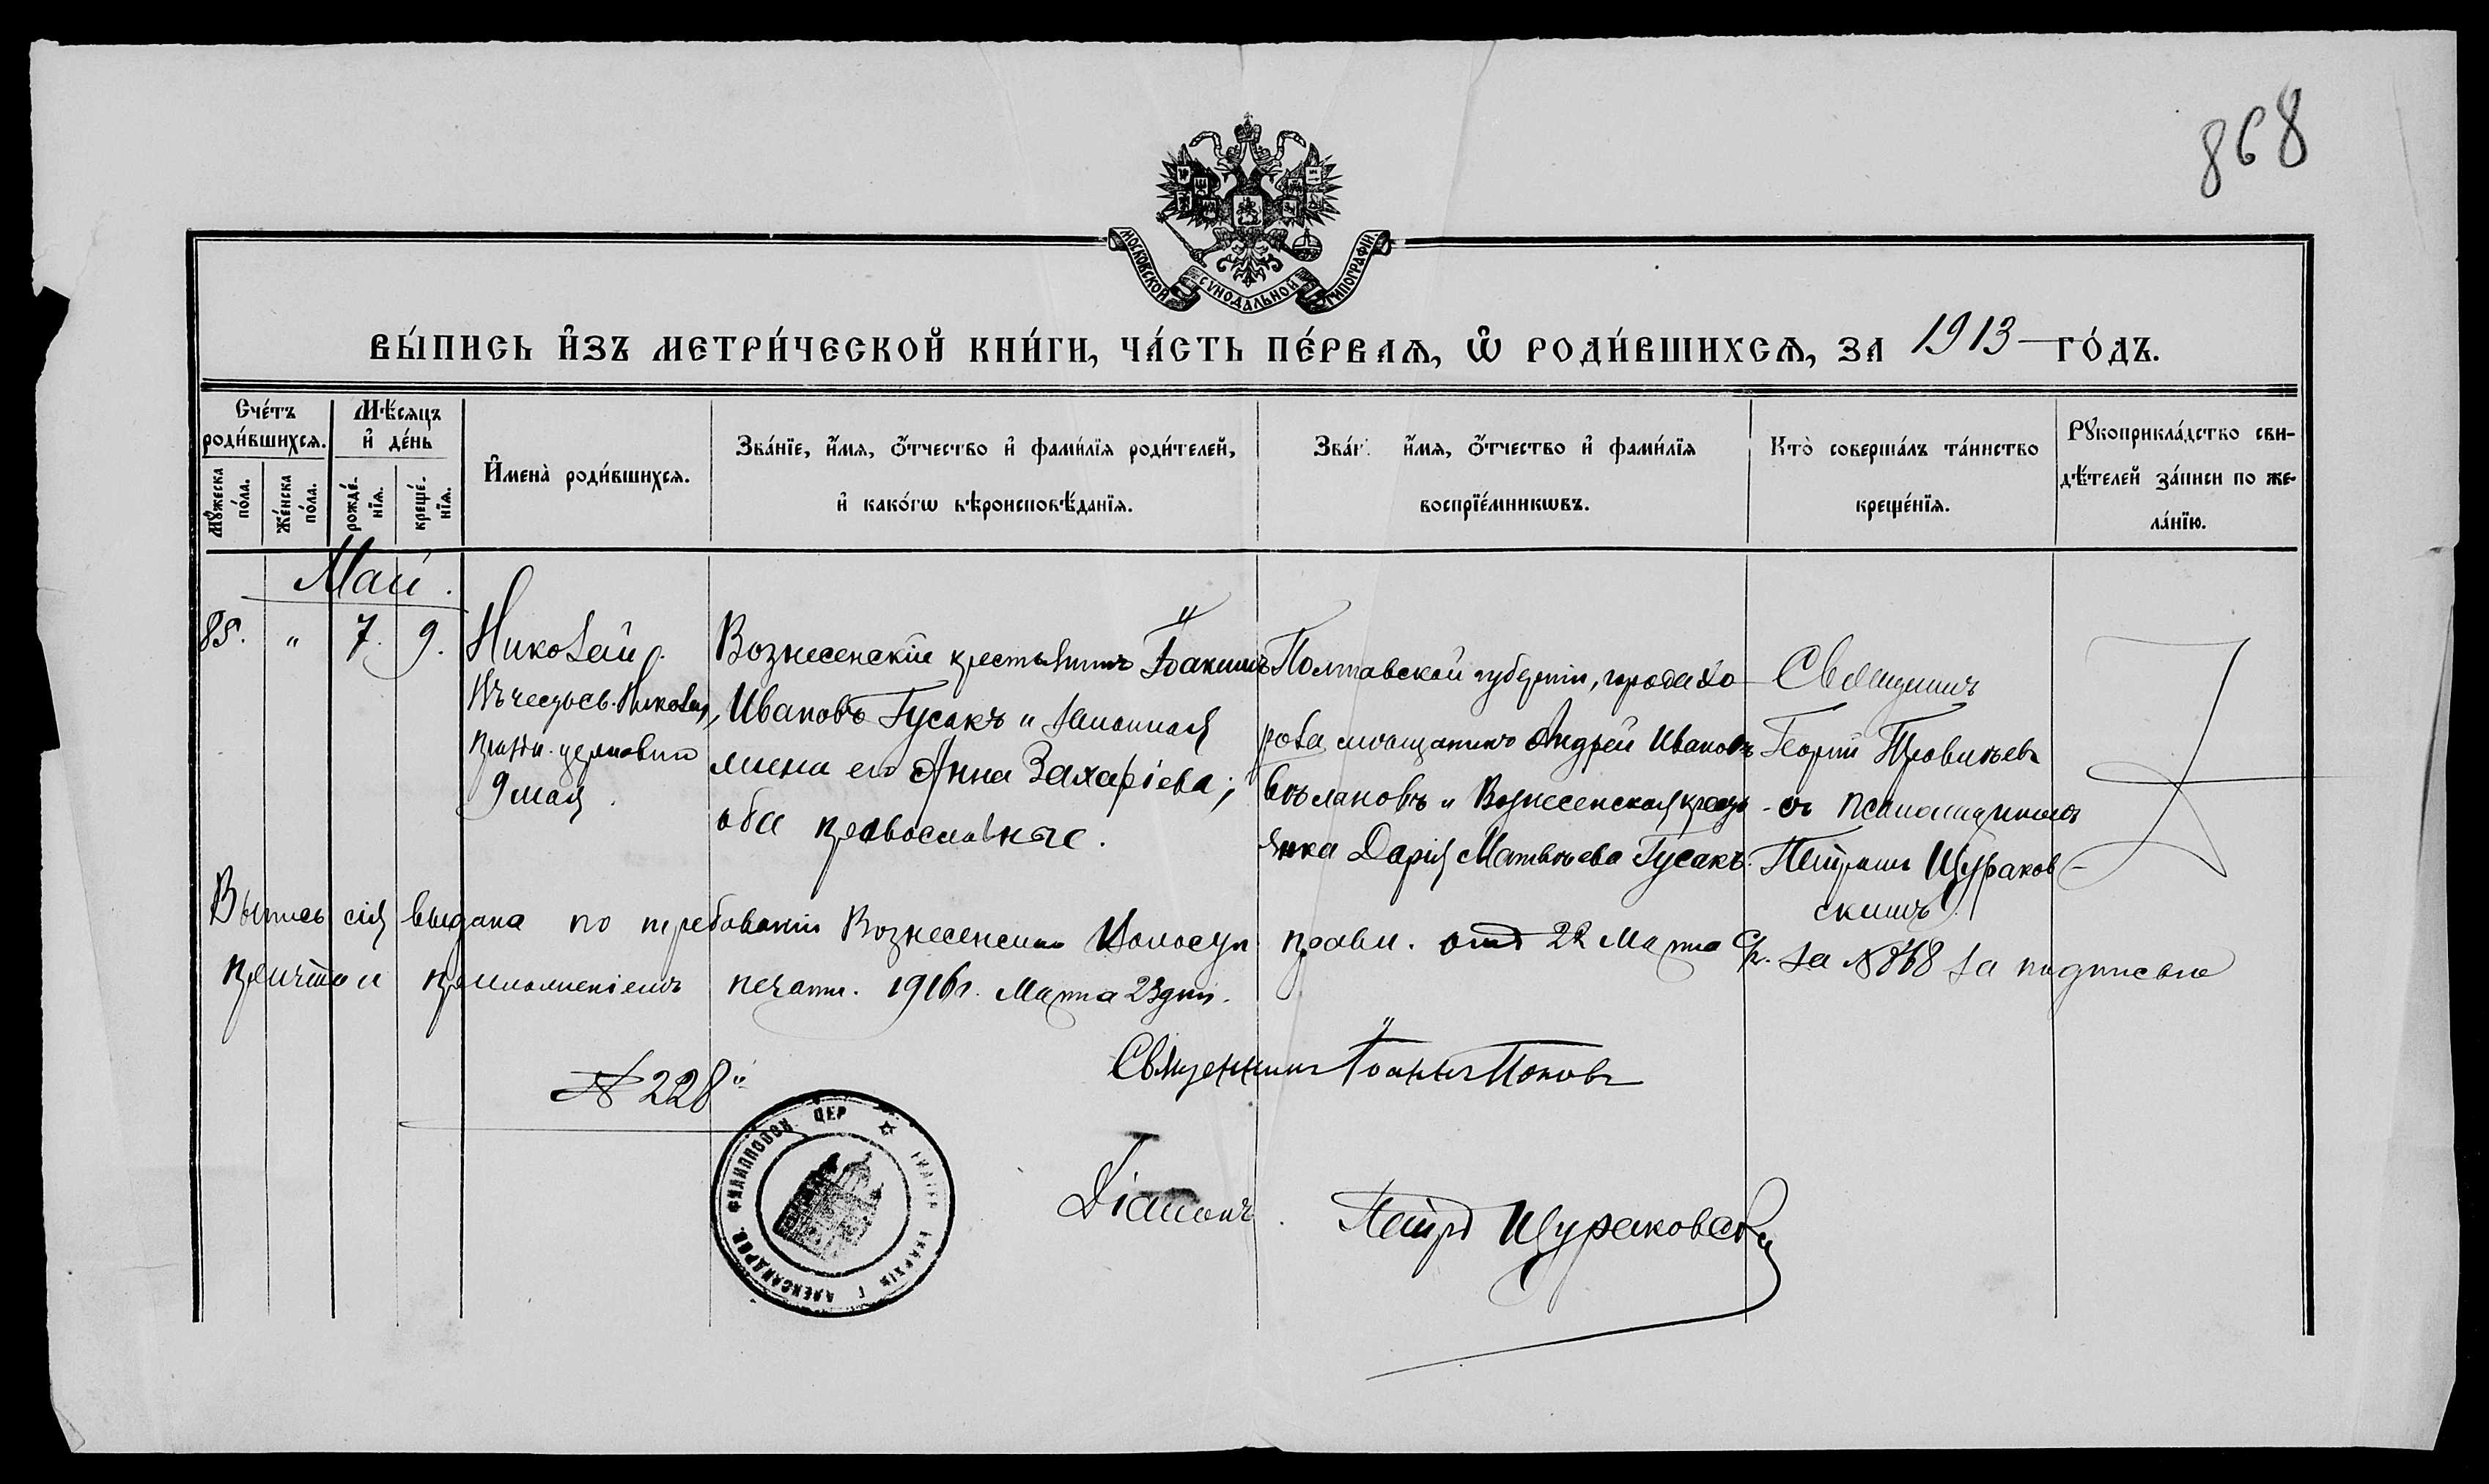 868
МОСКОВСКОЙ СѴНОДАЛЬНОЙ ТИПОГРАФІИ
ВЫ́ПИСЬ И҆ЗЪ МЕТРИ́ЧЕСКОЙ КНИ́ГИ, ЧА́СТЬ ПЕ́РВАѦ, Ѡ҆ РОДИ́ВШИХСѦ, ЗА 1913 ГО́ДЪ.
Сче́тъ роди́вшихсѧ.
Мꙋ́жеска по́ла.
Же́нска по́ла.
Мѣ́сѧцъ и҆ де́нь
рожде́нїѧ.
креще́нїѧ.
И҆мена̀ роди́вшихсѧ.
Зва́нїе, и҆́мѧ, ѻ҆́тчество и҆ фами́лїѧ роди́телей,
и҆ како́гѡ вѣроисповѣ́данїѧ.
Зва́н и҆́мѧ, ѻ҆́тчество и҆ фами́лїѧ
воспрїе́мникѡвъ.
Кто̀ соверша́лъ та́инство
креще́нїѧ.
Рꙋкоприкла́дство сви-
дѣ́телей за́писи по же-
ла́нїю.
Май.
85. " 7. 9.
Николай.
Въ честь св. Николая,
празн. церковью
9 мая.
Вознесенскій крестьянинъ Іоакимъ
Ивановъ Гусакъ и законная
жена его Анна Захаріева;
оба православные.
Полтавской губерніи, города Хо-
рола мѣщанинъ Андрей Ивановъ
и Вознесенская кресть-
янка Дарія Матвѣева Гусакъ.
Священникъ
Георгій
съ псаломщикомъ
Петромъ Щураков-
скимъ.
Выпись сія выдана по требованію Вознесенскаго Волосн. правл. отъ 22 Марта с/г. за №868 за подписью
причта и приложеніемъ печати. 1916 г. Марта 23 дня.
№ 228
Священникъ Іоаннъ Поповъ
Діаконъ Петръ Щураковскій
ФИЛИППОВСК. ЦЕР ☆ ЕПАРХІИ Г АЛЕКСАНДРОВ.